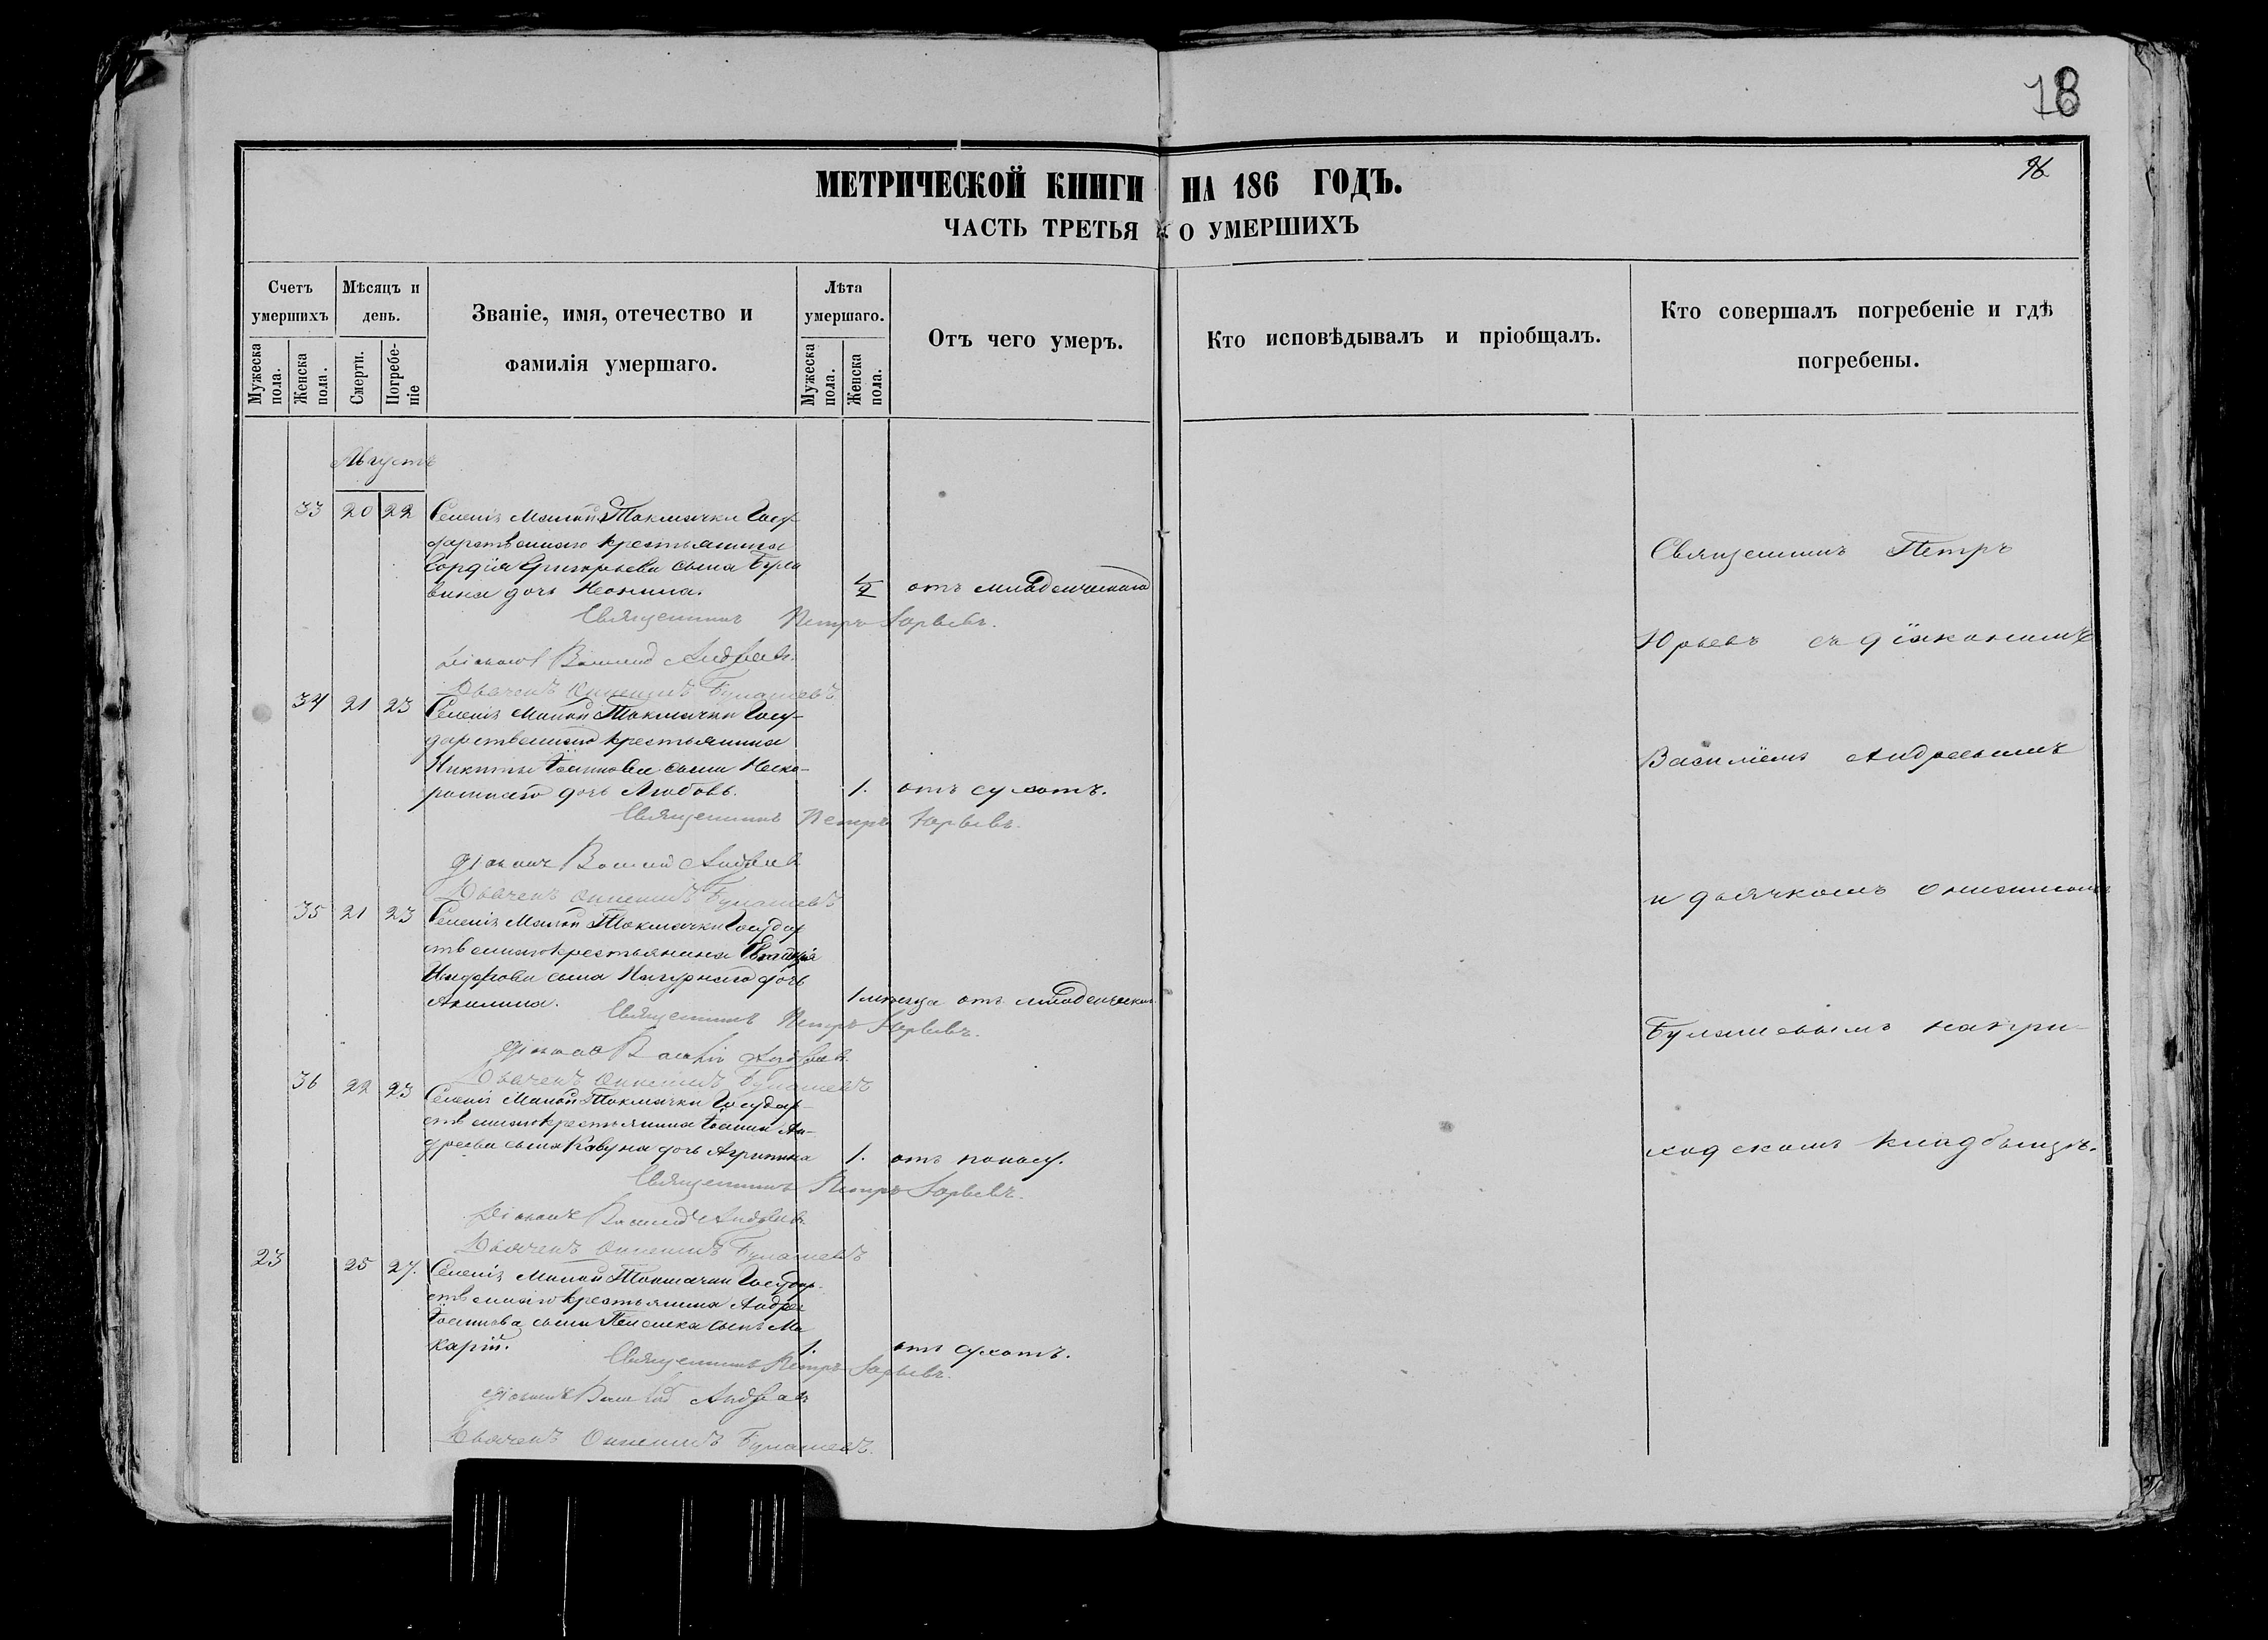 78
76
МЕТРИЧЕСКОЙ КНИГИ НА 186 ГОДЪ.
ЧАСТЬ ТРЕТЬЯ О УМЕРШИХЪ
Счетъ умершихъ
Мужеска пола.
Женска пола.
Мѣсяцъ и день.
Смерти.
Погребеніе
Званіе, имя, отечество и фамилія умершаго.
Лѣта умершаго.
Мужеска пола.
Женска пола.
Отъ чего умеръ.
Кто исповѣдывалъ и пріобщалъ.
Кто совершалъ погребеніе и гдѣ погребены.
Августъ
33 20 22 Селенія Малой Токмачки Госу-
дарственнаго крестьянина
Сергѣя Григорьева сына
дочь Неонила. ½ отъ младенческаго
Священникъ Петръ Юрьевъ.
Діаконъ Василій Андреевъ
Дьячекъ Онисимъ Булашевъ
34 21 23 Селенія Малой Токмачки Госу-
дарственнаго крестьянина
Никиты Іоаннова сына Неско-
ромнаго дочь Любовь. 1. отъ сухотъ.
Священникъ Петръ Юрьевъ.
Діаконъ Василій Андреевъ
Дьячекъ Онисимъ Булашевъ
35 21 23 Селенія Малой Токмачки Государ
ственнаго крестьянина
сына дочь
Акилина. 1 мѣсяца отъ младенческаго
Священникъ Петръ Юрьевъ.
Діаконъ Василій Андреевъ
Дьячекъ Онисимъ Булашевъ
36 22 23 Селенія Малой Токмачки Государ-
ственнаго крестьянина Іоанна Ан-
дреева сына Кавуна дочь Агрипина 1. отъ поносу.
Священникъ Петръ Юрьевъ.
Діаконъ Василій Андреевъ
Дьячекъ Онисимъ Булашевъ
23 25 27. Селенія Малой Токмачки Государ-
ственнаго крестьянина Андрея
Іоаннова сына сынъ Ма
карій. 1. отъ сухотъ.
Священникъ Петръ Юрьевъ.
Діаконъ Василій Андреевъ
Дьячекъ Онисимъ Булашевъ.
Священникъ Петръ
Юрьевъ съ діакономъ
Василіемъ Андреевымъ
и дьячкомъ Онисимомъ
Булашевымъ на при-
ходскомъ кладбищѣ.